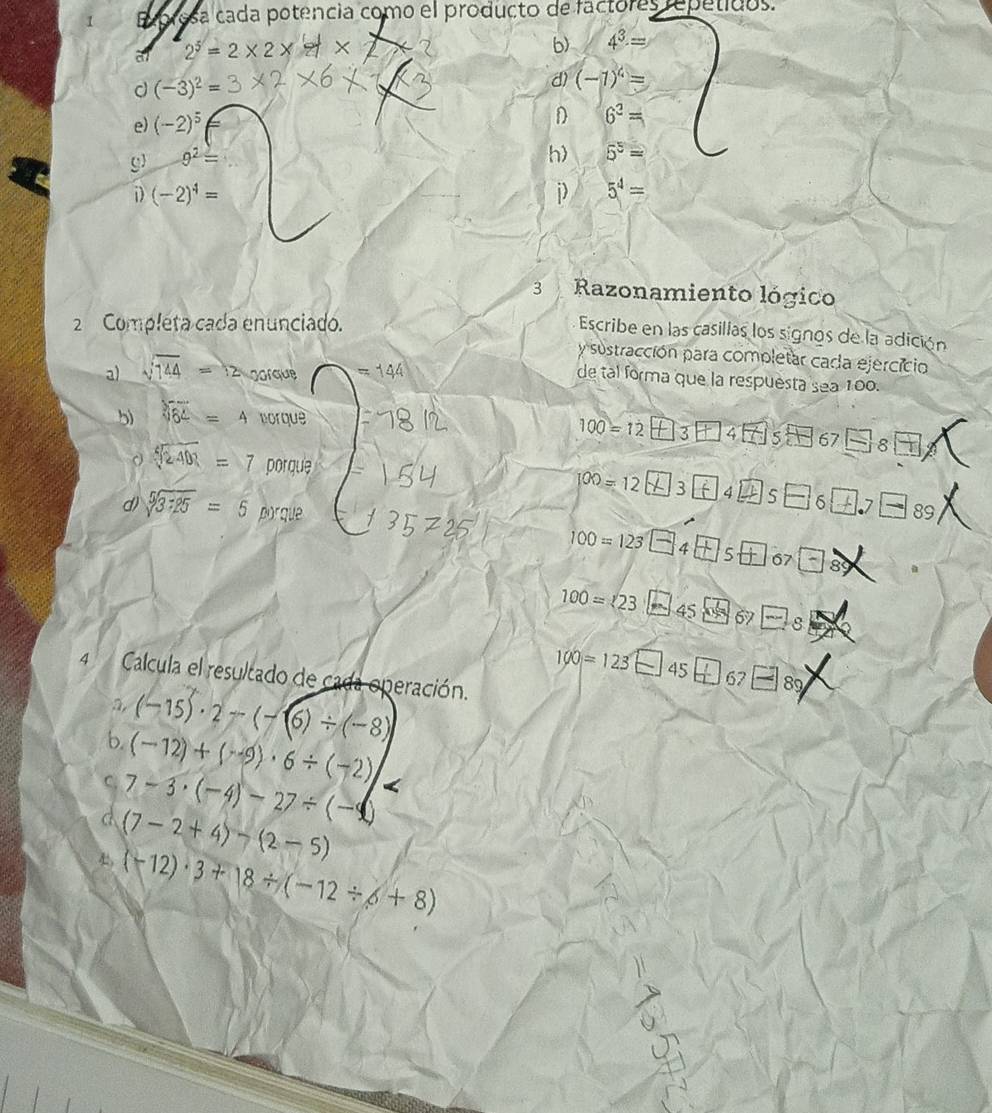 1 Expresa cada potencia como el producto de factores repetidos.
a) 2⁵ = 2 × 2 × 2 × 2 × 2
b) 4³ =
c) (−3)² = 3 × 2 × 6 × 3
d) (−1)⁴ =
e) (−2)⁵ =
f) 6³ =
g) 9² =
h) 5⁵ =
i) (−2)⁴ =
j) 5⁴ =
2 Completa cada enunciado.
a) √144 = 12 porque = 144
b) ∛64 = 4 porque = 78 12
c) ∜2401 = 7 porque = 154
d) ⁵√3125 = 5 porque
3 Razonamiento lógico
Escribe en las casillas los signos de la adición
y sustracción para completar cada ejercicio
de tal forma que la respuesta sea 100.
100 = 12 + 3 + 4 + 5 + 67 − 8 +
100 = 12 + 3 + 4 + 5 − 6 + 7 − 89
100 = 123 − 4 + 5 + 67 − 89
100 = 123 − 45 + 67 − 8
100 = 123 − 45 + 67 − 89
4 Calcula el resultado de cada operación.
a. (−15) · 2 − (−16) ÷ (−8)
b. (−12) + (−9) · 6 ÷ (−2)
c. 7 − 3 · (−4) − 27 ÷ (−9)
d. (7 − 2 + 4) − (2 − 5)
(−12) · 3 + 18 ÷ (−12 ÷ 6 + 8)